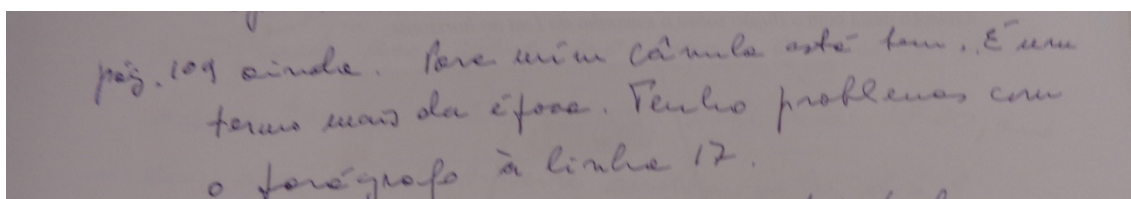 pág. 109 ainda. Para mim cânula está bem. É um
termo mais da época. Tenho problemas com
o parágrafo à linha 17.